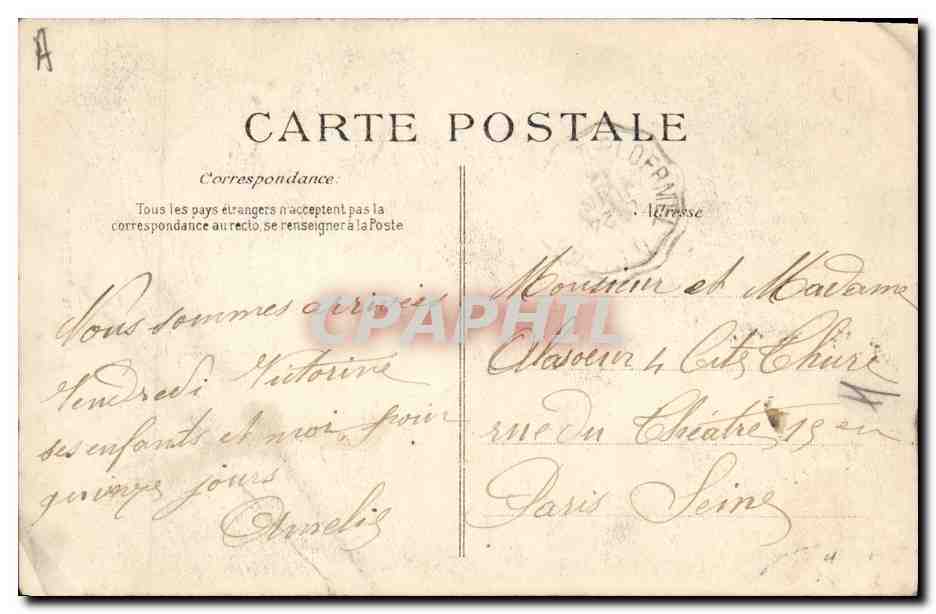 A
CARTE POSTALE
Correspondance:
Tous les pays étrangers n'acceptent pas la
correspondance au recto, se renseigner à la Poste
Adresse
Nous sommes arrivées
Vendredi Victorine
ses enfants et moi, pour
quinze jours
Amelie
Monsieur et Madame
4 Cité Thuré
rue du Théâtre 15 en
Paris Seine
CPAPHIL